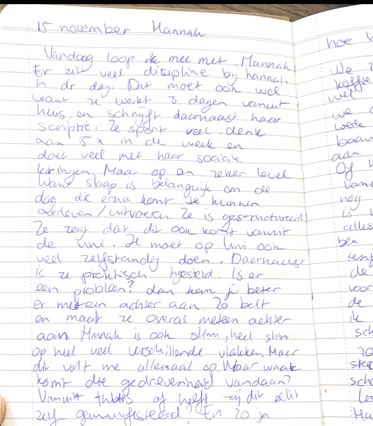 15 november Hannah
Vandaag loop ik mee met Hannah.
Er zit veel discipline bij Hannah.
in dr dag. Dat moet ook wel
want ze werkt 3 dagen vanuit
huis, en schrijft daarnaast haar
scriptie. Ze sport veel. denk
aan 5 x in de week en
doet veel met haar sociale
kringen. Maar op een zeker level
want slaap is belangrijk om de
dag die erna komt te kunnen
/ uitvoeren. Ze is gestructureerd
Ze zegt dat dit ook komt vanuit
de uni. Je moet op uni ook
veel zelfstandig doen. Daarnaast
is ze praktisch ingesteld. Is er
een probleem? dan kan je beter
er meteen achter aan. Zo belt
en maakt ze overal meteen achter
aan. Hannah is ook slim, heel slim
op heel veel verschillende vlakken. Maar
dit valt me allemaal op. Maar waar
komt die gedrevenheid vandaan?
Vanuit thuis of heeft zij dit echt
zelf ? En zo ja
hoe
We
koffie
wel
we
aan
Of
nog
is
alles
ben
de
voor
de
ik
sch